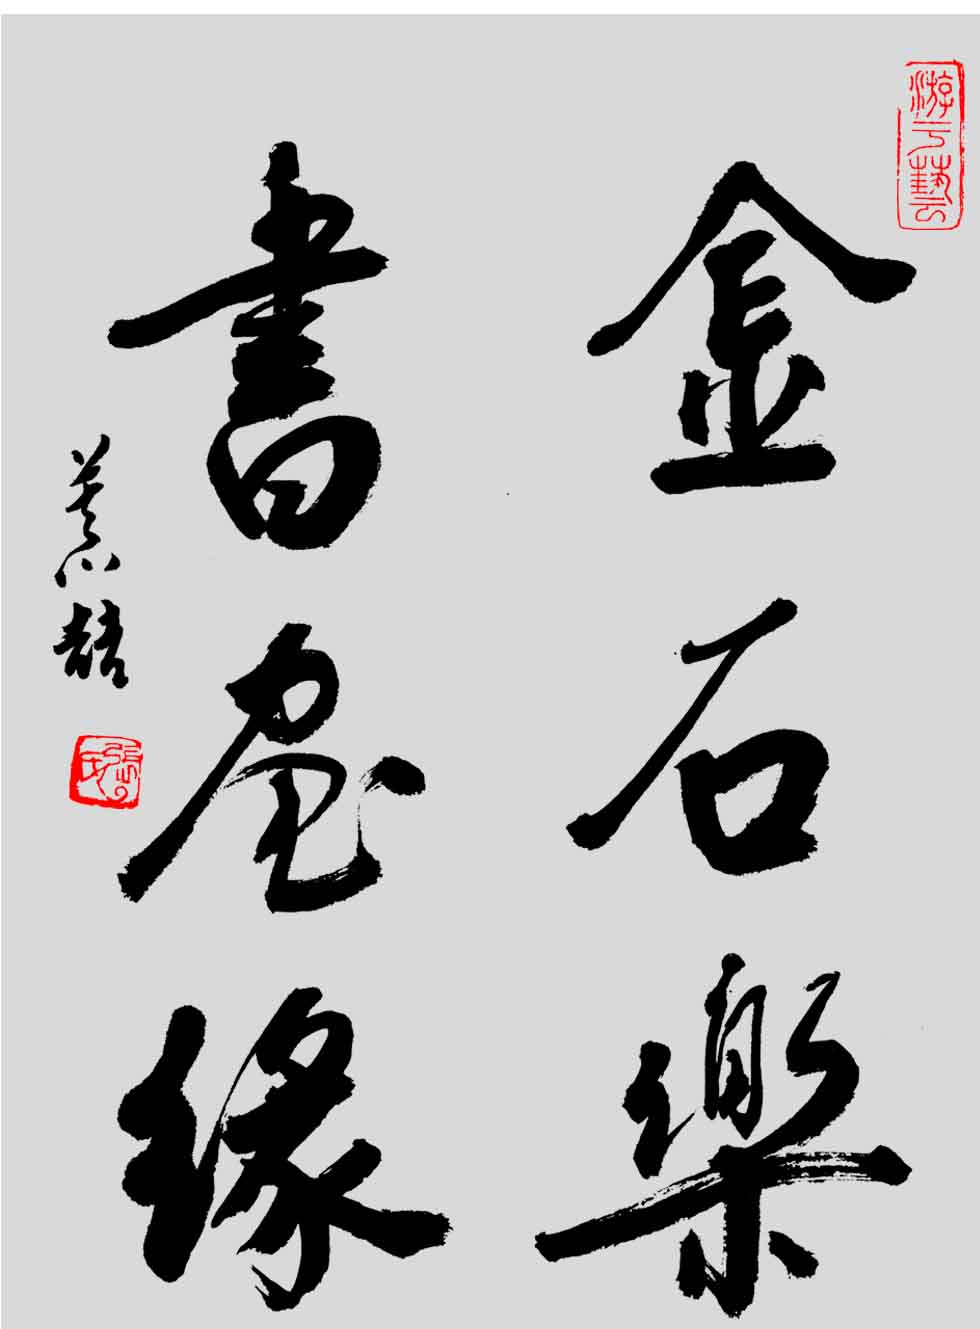 游于藝
金石樂
書畫緣